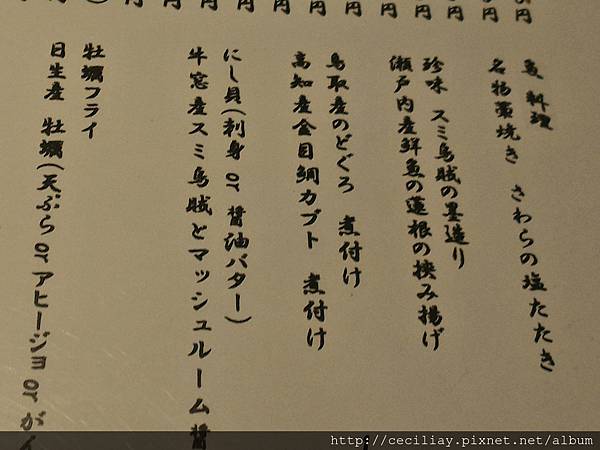 魚料理
名物藁焼き さわらの塩たたき
珍味 スミ烏賊の墨造り
瀬戸内産鮮魚の蓮根の挟み揚げ
鳥取産のどぐろ 煮付け
高知産金目鯛カブト 煮付け
にし貝(刺身 or 醤油バター)
牛窓産スミ烏賊とマッシュルーム醤
牡蠣フライ
日生産 牡蠣(天ぷら or アヒージョ or が
円 円 円 円 円 円 円 円 円 円 円
http://ceciliay.pixnet.net/album